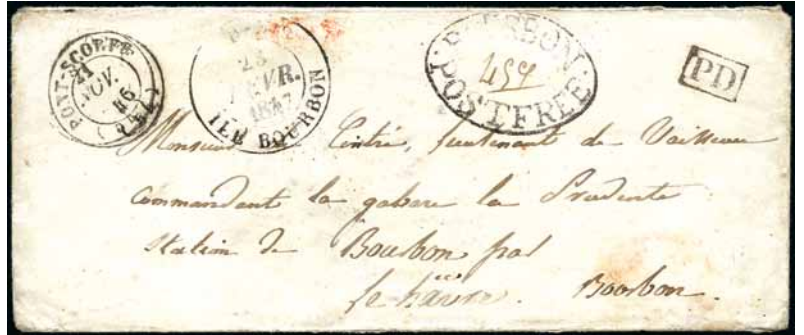 PONT-SCORFF
21
NOV.
46
ILE BOURBON
23
FEVR.
1847
BOURBON
POST FREE
457
PD
Monsieur Cintré, lieutenant de Vaisseau
commandant la gabare la Prudente
Station de Bourbon par
le hâvre. Bourbon.